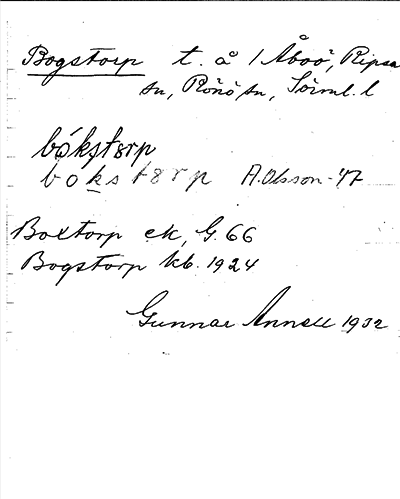 Bogstorp t. å 1 Åboö, Ripsa
sn, Rönö sn, Sörml. l
bókstorp
bokstorp A. Olsson -47
Boxtorp ek, G. 66
Bogstorp kb. 1924
Gunnar Annell 1932